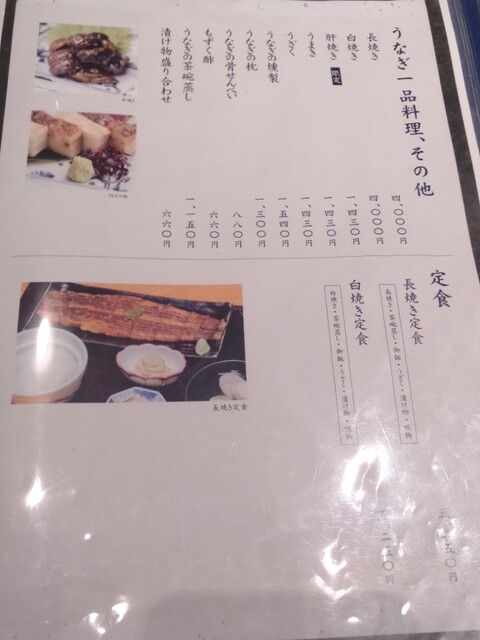 うなぎ一品料理、その他
長焼き 四、〇〇〇円
白焼き 四、〇〇〇円
肝焼き 限定 一、四三〇円
うまき 一、四三〇円
うざく 一、四三〇円
うなぎの燻製 一、五四〇円
うなぎの枕 一、三〇〇円
うなぎの骨せんべい 八八〇円
もずく酢 六六〇円
うなぎの茶碗蒸し 一、一五〇円
漬け物盛り合わせ 六六〇円
定食
長焼き定食
長焼き・茶碗蒸し・御飯・うざく・漬け物・吸物
白焼き定食
白焼き・茶碗蒸し・御飯・うざく・漬け物・吸物
長焼き定食